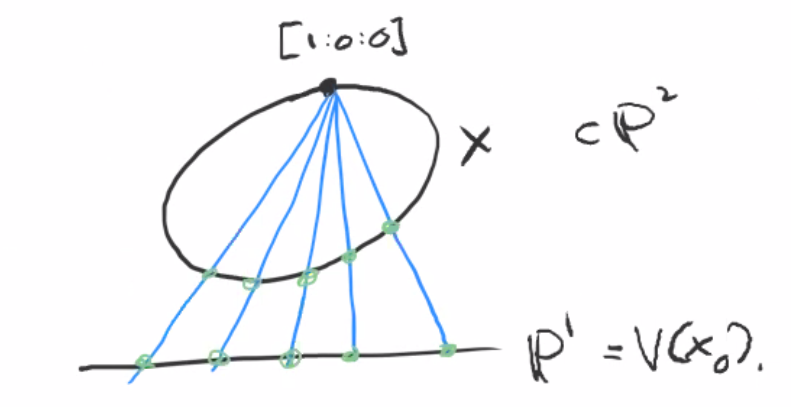 [1:0:0]
X ⊂ ℙ²
ℙ¹ = V(x₀).